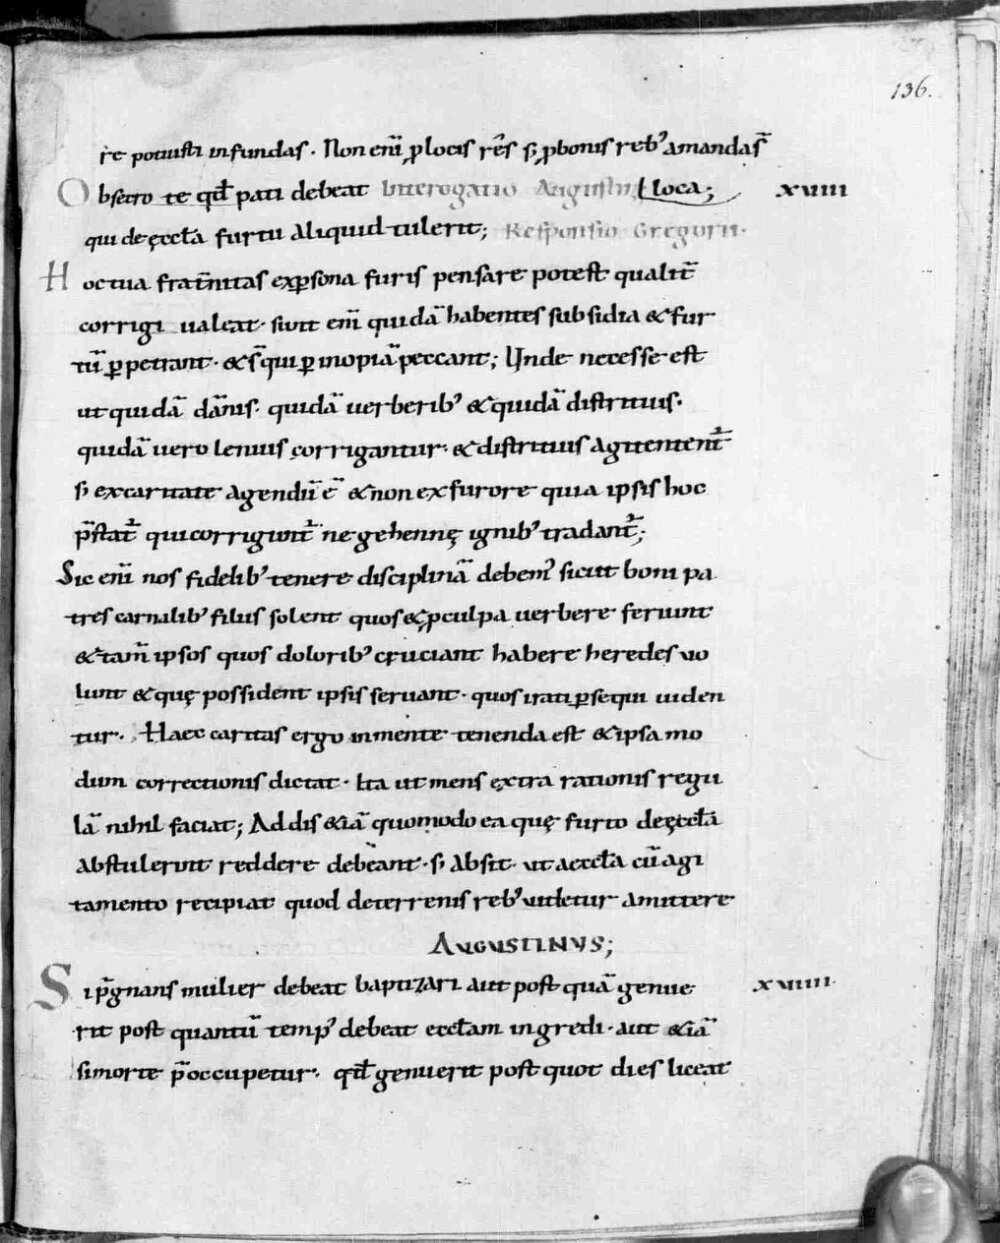 136.
re potuisti infundas. Non enī ꝑ locis rēs s; ꝑ bonis reb; amandas̄
Obsecro te qđ pati debeat Interrogatio Augustini loca; xviii
qui de ęccła furtu aliquid tulerit; Responsio Gregorii.
Hoc tua frat̄nitas ex ꝑsona furis pensare potest qualit̄
corrigi ualeat. sunt enī quidā habentes subsidia & fur
tū ꝑpetrant. & s̄ qui ꝑ inopiā peccant; Unde necesse est
ut quidā dānis. quidā uerberib; & quidā districtius.
quidā uero lenius corrigantur. & districtius agitentent̄
s; ex caritate agendū ē & non ex furore quia ipsis hoc
p̄stat̄ qui corrigunt̄ ne gehennę ignib; tradant̄;
Sic enī nos fidelib; tenere disciplinā debem; sicut boni pa
tres carnalib; filiis solent quos & ꝑ culpa uerbere feriunt
& tam̄ ipsos quos dolorib; cruciant habere heredes uo
lunt & quę possident ipsis seruant. quos irati ꝑsequi uiden
tur. Haec caritas ergo in mente tenenda est & ipsa mo
dum correctionis dictat. Ita ut mens extra rationis regu
lā nihil faciat; Addis & iā quomodo ea quę furto de ęccła
abstulerunt reddere debeant. s; absit. ut aeccła cū agi
tamento recipiat quod de terrenis reb; uidetur amittere
AUGUSTINUS;
Si p̄gnans mulier debeat baptizari aut post quā genue xviiii.
rit post quantū temp; debeat eccłam ingredi. aut & iā
si morte p̄occupetur. qđ genuerit post quot dies liceat